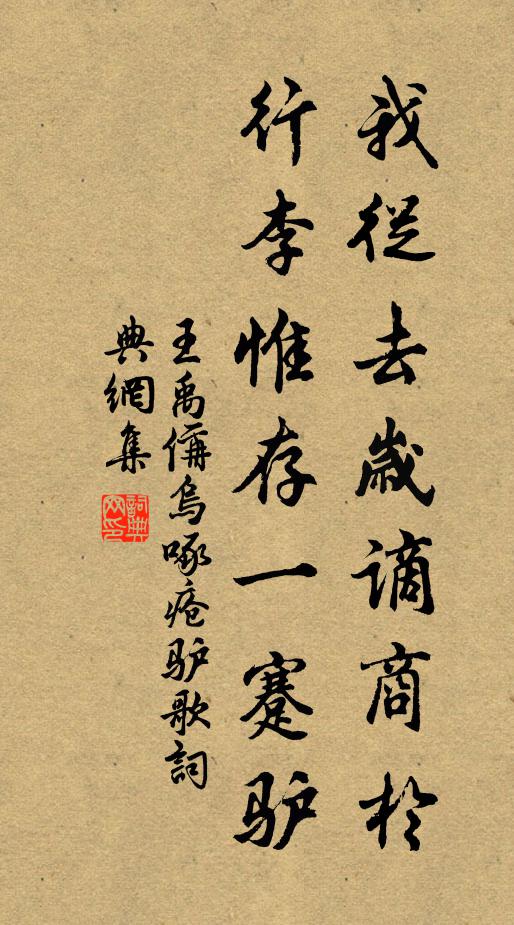 我從去歲謫商於
行李惟存一蹇驴
王禹偁烏啄瘡驴歌詞
典網集
詞典
网印